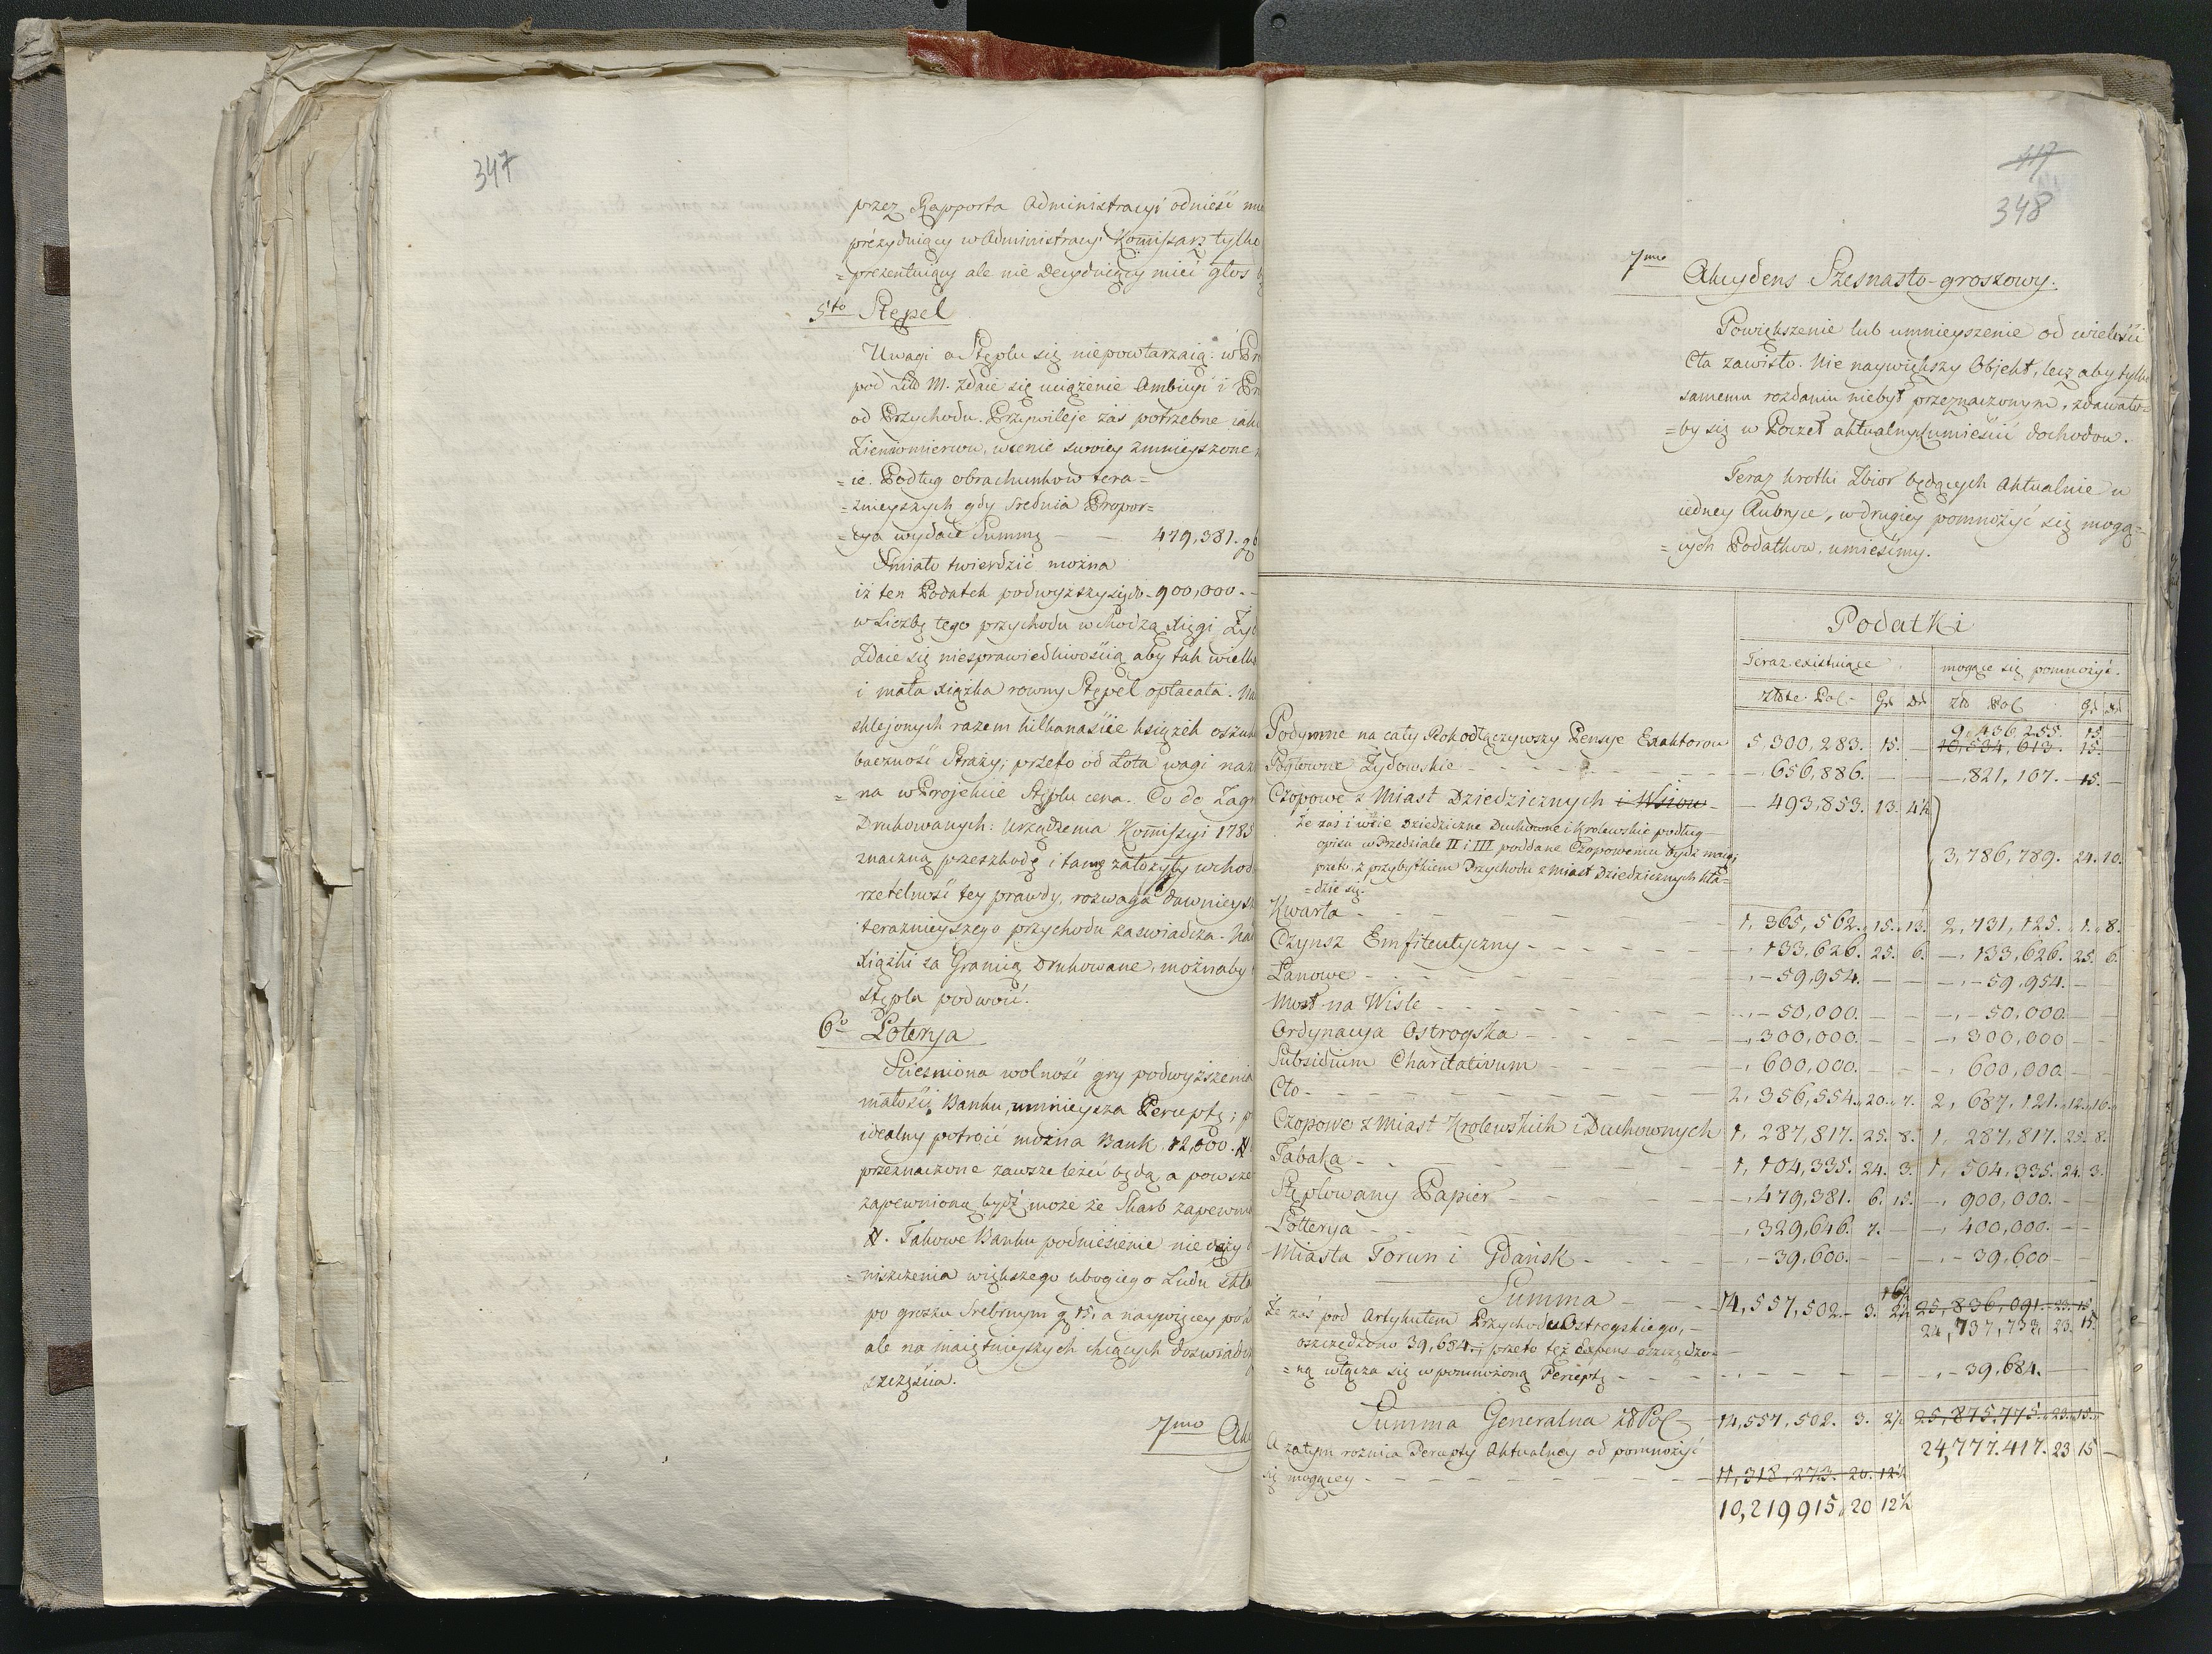 347
przez Rapporta Administracyi odnieść
prezyduiący w Administracyi Kommissarz tylko
=prezentuiący ale nie decyduiący mieć głos
5to Stępel
Uwagi o Stęplu się niepowtarzaią: w
pod Litt M. zdaie się uciążenie Ambicyi i
od Przychodu. Przywileje zaś potrzebne
Ziemiomierow, w cenie swoiey zmnieyszone
=ie. Podług obrachunkow tera=
=znieyszych gdy srednia Propor=
=cya wydaie Summę — — 479,381.
Smiało twierdzić można
iż ten Podatek podwyższy się do - 900,000. -
w Liczbę tego przychodu wchodzą xięgi
Zdaie się niesprawiedliwością aby tak wielka
i mała xiążka rowny Stępel opłacała.
sklejonych razem kilkanaście książek
baczność Straży; przeto od Łota wagi
=na w Projekcie Stęplu cena. Co do
Drukowanych: Urządzenia Kommissyi 1785
znaczną przeszkodę i tamę założyły
rzetelność tey prawdy, rozwaga dawnieysz
teraznieyszego przychodu zaswiadcza.
xiążki za Granicą drukowane, możnaby
stępla podwoić.
6to Loterya
Sciesniona wolność gry podwyższenia
małością Banku, umnieysza Perceptę;
idealny potroić można Bank. 12,000. #
przeznaczone zawsze leżeć będą a
zapewnioną bydź może że Skarb
#. Takowe Banku podniesienie nie
=niszczenia większego ubogiego Ludu
po groszu srebrnym g 15, a naywięcey
ale na maiętnieyszych chcących
szczęścia.
7mo
117
348
7mo Akcydens Szesnasto-groszowy.
Powiększenie lub umnieyszenie od wielości
Cła zawisło. Nie naywiększy Objekt, lecz aby tylko
samemu rozdaniu niebył przeznaczonym, zdawało=
=by się w Poczet aktualnych umieścić dochodow.
Teraz krotki Zbior będących Aktualnie w
iedney Rubryce, w drugiey pomnożyć się mogą=
=cych Podatkow, umieścimy.
Podatki
Teraz existuiące mogące się pomnożyć.
Złote Pol. Gr dn zło Pol Gr dn
9,436,255. 15. —
Podymne na cały Rok odłączywszy Pensye Exaktorow 5,300,283. 15. — 10,534,613. 15.
Pogłowne Żydowskie — 656,886. — — —,821,107. — 15. —
Czopowe z Miast Dziedzicznych i Wsiow — 493,853. 13. 4½
Że zaś i wsie Dziedziczne Duchowne i Krolewskie podług
opisu w Przedziale II i III poddane Czopowemu bydź maią;
przeto z przybytkiem Przychodu z Miast Dziedzicznych kła= 3,786,789. 24. 10.
=dzie się.
Kwarta 1,365,562. 15. 13. 2,731,125. 1. 8.
Czynsz Emfiteutyczny 133,626. 25. 6. —,133,626. 25. 6.
Łanowe — 59,954. — — — 59,954. — —
Most na Wisle — 50,000. — — — 50,000 — —
Ordynacya Ostrogska — 300,000. — — —,300,000 — —
Subsidium Charitativum — 600,000. — — —,600,000. — —
Cło — 2,356,554. 20. 7. 2,687,121. 12. 16.
Czopowe z Miast Krolewskich i Duchownych 1,287,817. 25. 8. 1,287,817. 25. 8.
Tabaka 1,104,335. 24. 3. 1,504,335. 24. 3.
Stęplowany Papier —,479,381. 6. 15. —,900,000. — —
Lotterya —,329,646. 7. — —,400,000. — —
Miasta Torun i Gdańsk — 39,600. — — — 39,600 — —
Summa 14,557,502. 3. 2½ 25,836,091. 23. 15.
24,737,733. 23. 15.
Że zaś pod Artykułem Przychodu Ostrogskiego,
oszczędzono 39,684., przeto też Expens oszczędzo=
=ną włącza się w pomnożoną Perceptę — — 39,684. —
Summa Generalna zł Pol 14,557,502. 3. 2½ 25,875,775. 23. 15.
24,777,417. 23 15 —
A zatym roznica Percepty Aktualney od pomnożyć
się mogącey — 11,318,273. 20. 12½
10,219,915, 20 12½